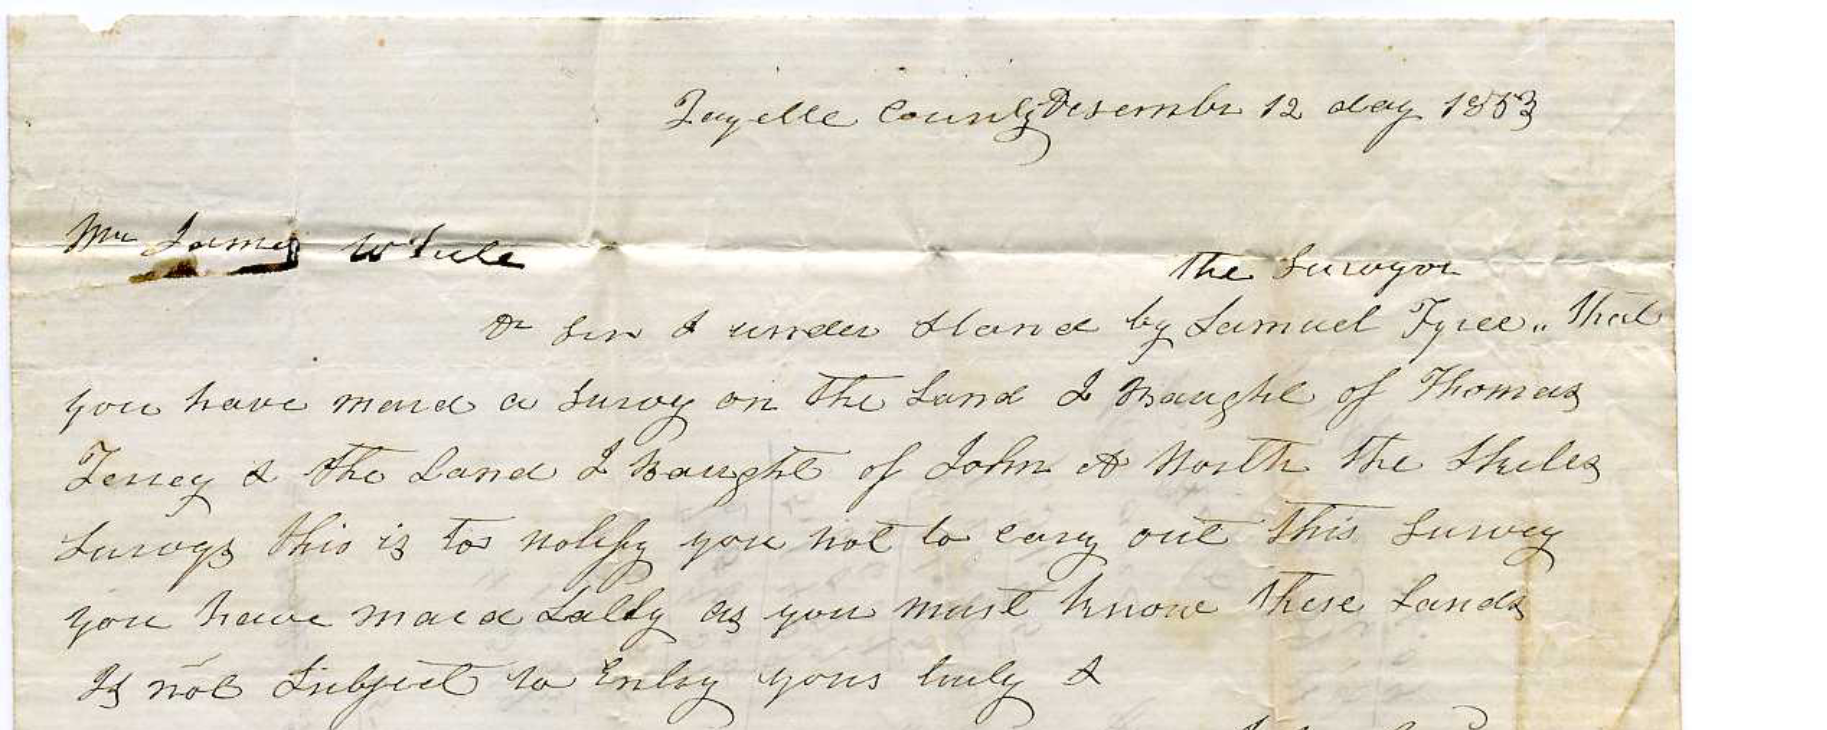 Fayette County Desember 12 day 1853
Mr James White
the Survyor
Dr Sir I under Stand by Samuel Tyree " that
you have maid a Survy on the Land I Baught of Thomas
& the Land I Baught of John A North the
Survys this is to notify you not to cary out this Survey
you have maid Latly as you must know these Lands
Is not Subject to Entry yours truly &